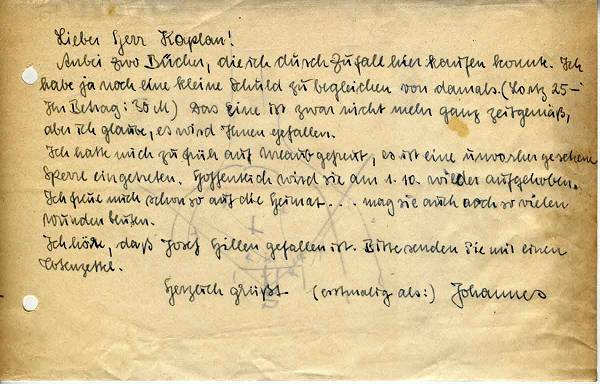 Lieber Herr Kaplan!
Anbei zwo Bücher, die ich durch Zufall hier kaufen konnte. Ich
habe ja noch eine kleine Schuld zu begleichen von damals. (Lortz 25-
Ihr Betrag: 30 M) Das Eine ist zwar nicht mehr ganz zeitgemäß,
aber ich glaube, es wird Ihnen gefallen.
Ich hatte mich zu früh auf Urlaub gefreut, es ist eine unvorhergesehene
Sperre eingetreten. Hoffentlich wird sie am 1. 10. wieder aufgehoben.
Ich freue mich schon so auf die Heimat... mag sie auch aus so vielen
Wunden bluten.
Ich höre, daß Josef Hillen gefallen ist. Bitte senden Sie mir einen
Totenzettel.
Herzlich grüßt (erstmalig als:) Johannes